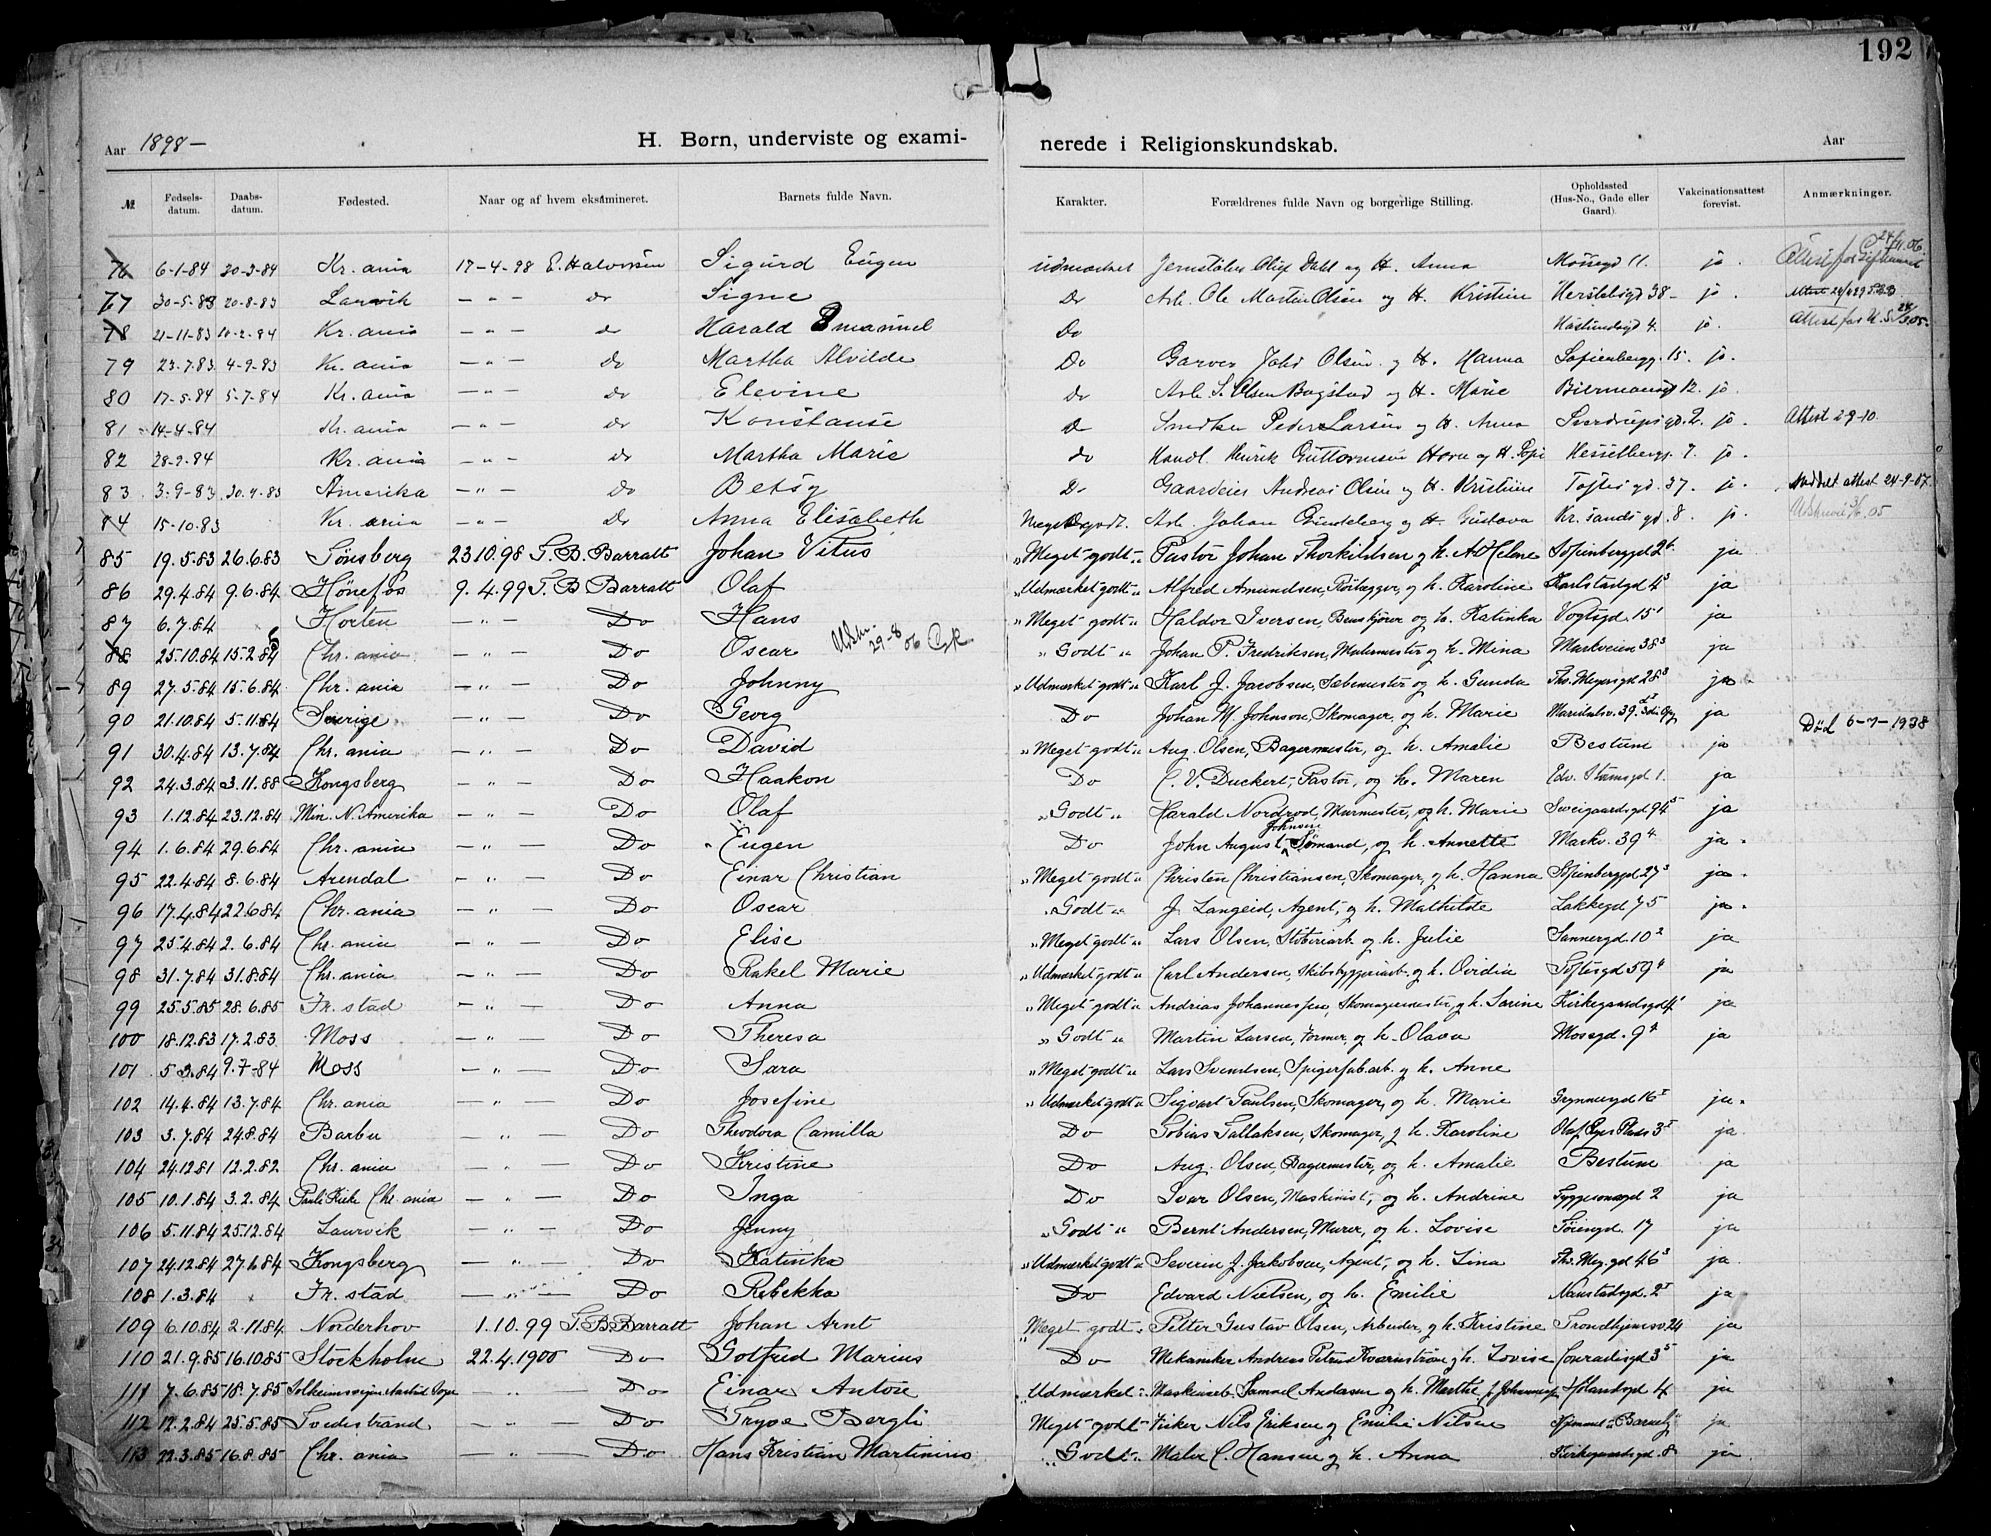 192
Aar 1898 — H. Børn, underviste og exami- nerede i Religionskundskab. Aar
№ Fødsels-datum. Daabs-datum. Fødested. Naar og af hvem eksamineret. Barnets fulde Navn. Karakter. Forældrenes fulde Navn og borgerlige Stilling. Opholdssted (Hus-No., Gade eller Gaard). Vakcinationsattest forevist. Anmærkninger.
76 6-1-84 30-3-84 Kr. ania 17-4-98 E. Halvorsen Sigurd Eugen udmærket Oluf Dahl og H. Anna Mossegd 11. jo. Attest for
77 30-5-83 20-8-83 Larvik — „ — do Signe Do Arb. Ole Martin Olsen og H. Kristine Herslebsgd 38 — jo.
78 21-11-83 10-2-84 Kr. ania — „ — do Harald Emanuel Do 4. jo. Attest for
79 23-7-83 4-9-83 Kr. ania — „ — do Martha Alvilde Do Garver Johs Olsen og H. Hanna Sofienbergg. 15. jo.
80 17-5-84 5-7-84 Kr. ania — „ — do Elevine do Arb. S. Olsen Bogstad og H. Marie 12. jo.
81 14-4-84 Kr. ania — „ — do Konstanse do Snedker Peder Larsen og H. Anna Sverdrupsgd. 2. jo. Attest 29-10.
82 28-2-84 Kr. ania — „ — do Martha Marie do Handl. Henrik Guttormsen Horn og H. Hesselbergg. 7. jo.
83 3-9-83 30-4-83 Amerika — „ — do Betsy Do Gaardeier Andreas Olsen og H. Kristine Toftesgd. 37. jo. attest 24-9-07.
84 15-10-83 Kr. ania — „ — do Anna Elisabeth Meget godt. Arb. Johan og H. Gustava Kr. sands gd. 8. jo.
85 19.5.83 26.6.83 Tønsberg 23.10.98 T. B. Barratt Johan Vitus „Meget godt„ Pastor Johan Thorkildsen og h. Sofienberggd 2 ja
86 29.4.84 9.6.84 Hønefos 9.4.99 T. B. Barratt Olaf „Udmærket godt„ Alfred Amundsen, Rørlægger, og h. Karoline Karlstadgd 4 ja
87 6.7.84 Horten — „ — Do Hans „Meget godt„ Haldor Iversen, og h. Katinka Vogtsgd. 15 ja
88 25.10.84 15.2.85 Chr. ania — „ — Do Oscar 29-8 06 „Godt„ Johan P. Fredriksen, Malermester og h. Mina Markveien 38 ja
89 27.5.84 15.6.84 Chr. ania — „ — Do Johnny „Udmærket godt„ Karl J. Jacobsen, Sæbemester og h. Gunda Th. Meyersgd 28 ja
90 21.10.84 5.11.84 Sverige — „ — Do Georg Do Johan M. Johnson, Skomager, og h. Marie Maridalsv. 39 ja
91 30.4.84 13.7.84 Chr. ania — „ — Do David „Meget godt„ Aug. Olsen, Bagermester, og h. Amalie Bestum ja Død 6-7-1938
92 24.3.84 3.11.88 Kongsberg — „ — Do Haakon Do C. V. Duckert, Pastor, og h. Maren Edv. Stormsgd 1. ja
93 1.12.84 23.12.84 Min. N. Amerika — „ — Do Olaf „Godt„ Harald Nordrod, Murmester, og h. Marie Sveigaardsgd 94 ja
94 1.6.84 29.6.84 Chr. ania — „ — Do Eugen Do John August Johnsen Sømand, og h. Annette Markv. 39 ja
95 22.4.84 8.6.84 Arendal — „ — Do Einar Christian „Meget godt„ Christen Christiansen, Skomager, og h. Hanna Sofienberggd 27 ja
96 17.4.84 22.6.84 Chr. ania — „ — Do Oscar „Godt„ J. Langeid, Agent, og h. Mathilde Lakkegd 75 ja
97 25.4.84 2.6.84 Chr. ania — „ — Do Elise „Meget godt„ Lars Olsen, Støberiarb. og h. Julie Sannergd. 10 ja
98 31.7.84 31.8.84 Chr. ania — „ — Do Rakel Marie „Udmærket godt„ Carl Andersen, Skibsbyggeriarb. og h. Ovidia Toftesgd 59 ja
99 25.5.85 28.6.85 Fr. stad — „ — Do Anna „Meget godt„ Andrias Johannessen, Skomagermester, og h. Sarine Kirkegaardsgd 4 ja
100 18.12.83 17.2.83 Moss — „ — Do Theresa „Godt„ Martin Larsen, Former, og h. Olava Mossgd. 9 ja
101 5.3.84 9.7-84 Moss — „ — Do Sara „Meget godt„ Lars Svendsen, Spigerfab.arb. og h. Anne
102 14.4.84 13.7.84 Chr. ania — „ — Do Josefine „Udmærket godt„ Sigvart Paulsen, Skomager, og h. Marie Grynnersgd 16 ja
103 3.7.84 24.8.84 Barbu — „ — Do Theodora Camilla Do Tobias Tallaksen, Skomager, og h. Karoline Olaf Ryes Plads 3 ja
104 24.12.81 12.2.82 Chr. ania — „ — Do Kristine Do Aug. Olsen, Bagermester, og h. Amalie Bestum ja
105 10.1.84 3.2.84 Pauli Kirk Chr. ania — „ — Do Inga Do Ivar Olsen, Maskinist, og h. Andrine 2 ja
106 5.11.84 25.12.84 Laurvik — „ — Do Jenny „Godt„ Bernt Andersen, Murer, og h. Lovise Tøiengd. 17 ja
107 24.12.84 27.1.84 Kongsberg — „ — Do Katinka „Udmærket godt„ Severin J. Jakobsen, Agent, og h. Lina Th. Mey. gd 46 ja
108 1.3.84 Fr. stad — „ — Do Rebekka Do Edvard Nielsen, og h. Emilie Nanstadgd. 2 ja
109 6.10.84 2.11.84 Norderhov 1.10.99 T. B. Barratt Johan Arnt „Meget godt„ Petter Gustav Olsen, Arbeider, og h. Kristine Trondhjemsv. 24 ja
110 21.9.85 16.10.85 Stockholm 22.4.1900 Do Gotfred Marius Do Mekaniker Andreas Petrus og h. Lovise Conradisgd 3 ja
111 7.6.85 18.7.85 — „ — Do Einar Antore „Udmærket„ Samuel Andersen og h. Marthe Hølandsgd 4 ja
112 12.2.84 25.5.85 Tvedestrand — „ — Do Trygve Bergli Meget godt Fisker Nils Eriksen og Emilie Nilsen Hjemmet ja
113 22.3.85 16.8.85 Chr. ania — „ — Do Hans Kristian Martinius „Godt„ Maler C. Hansen og h. Anna Kirkegaardsgd. 8 ja